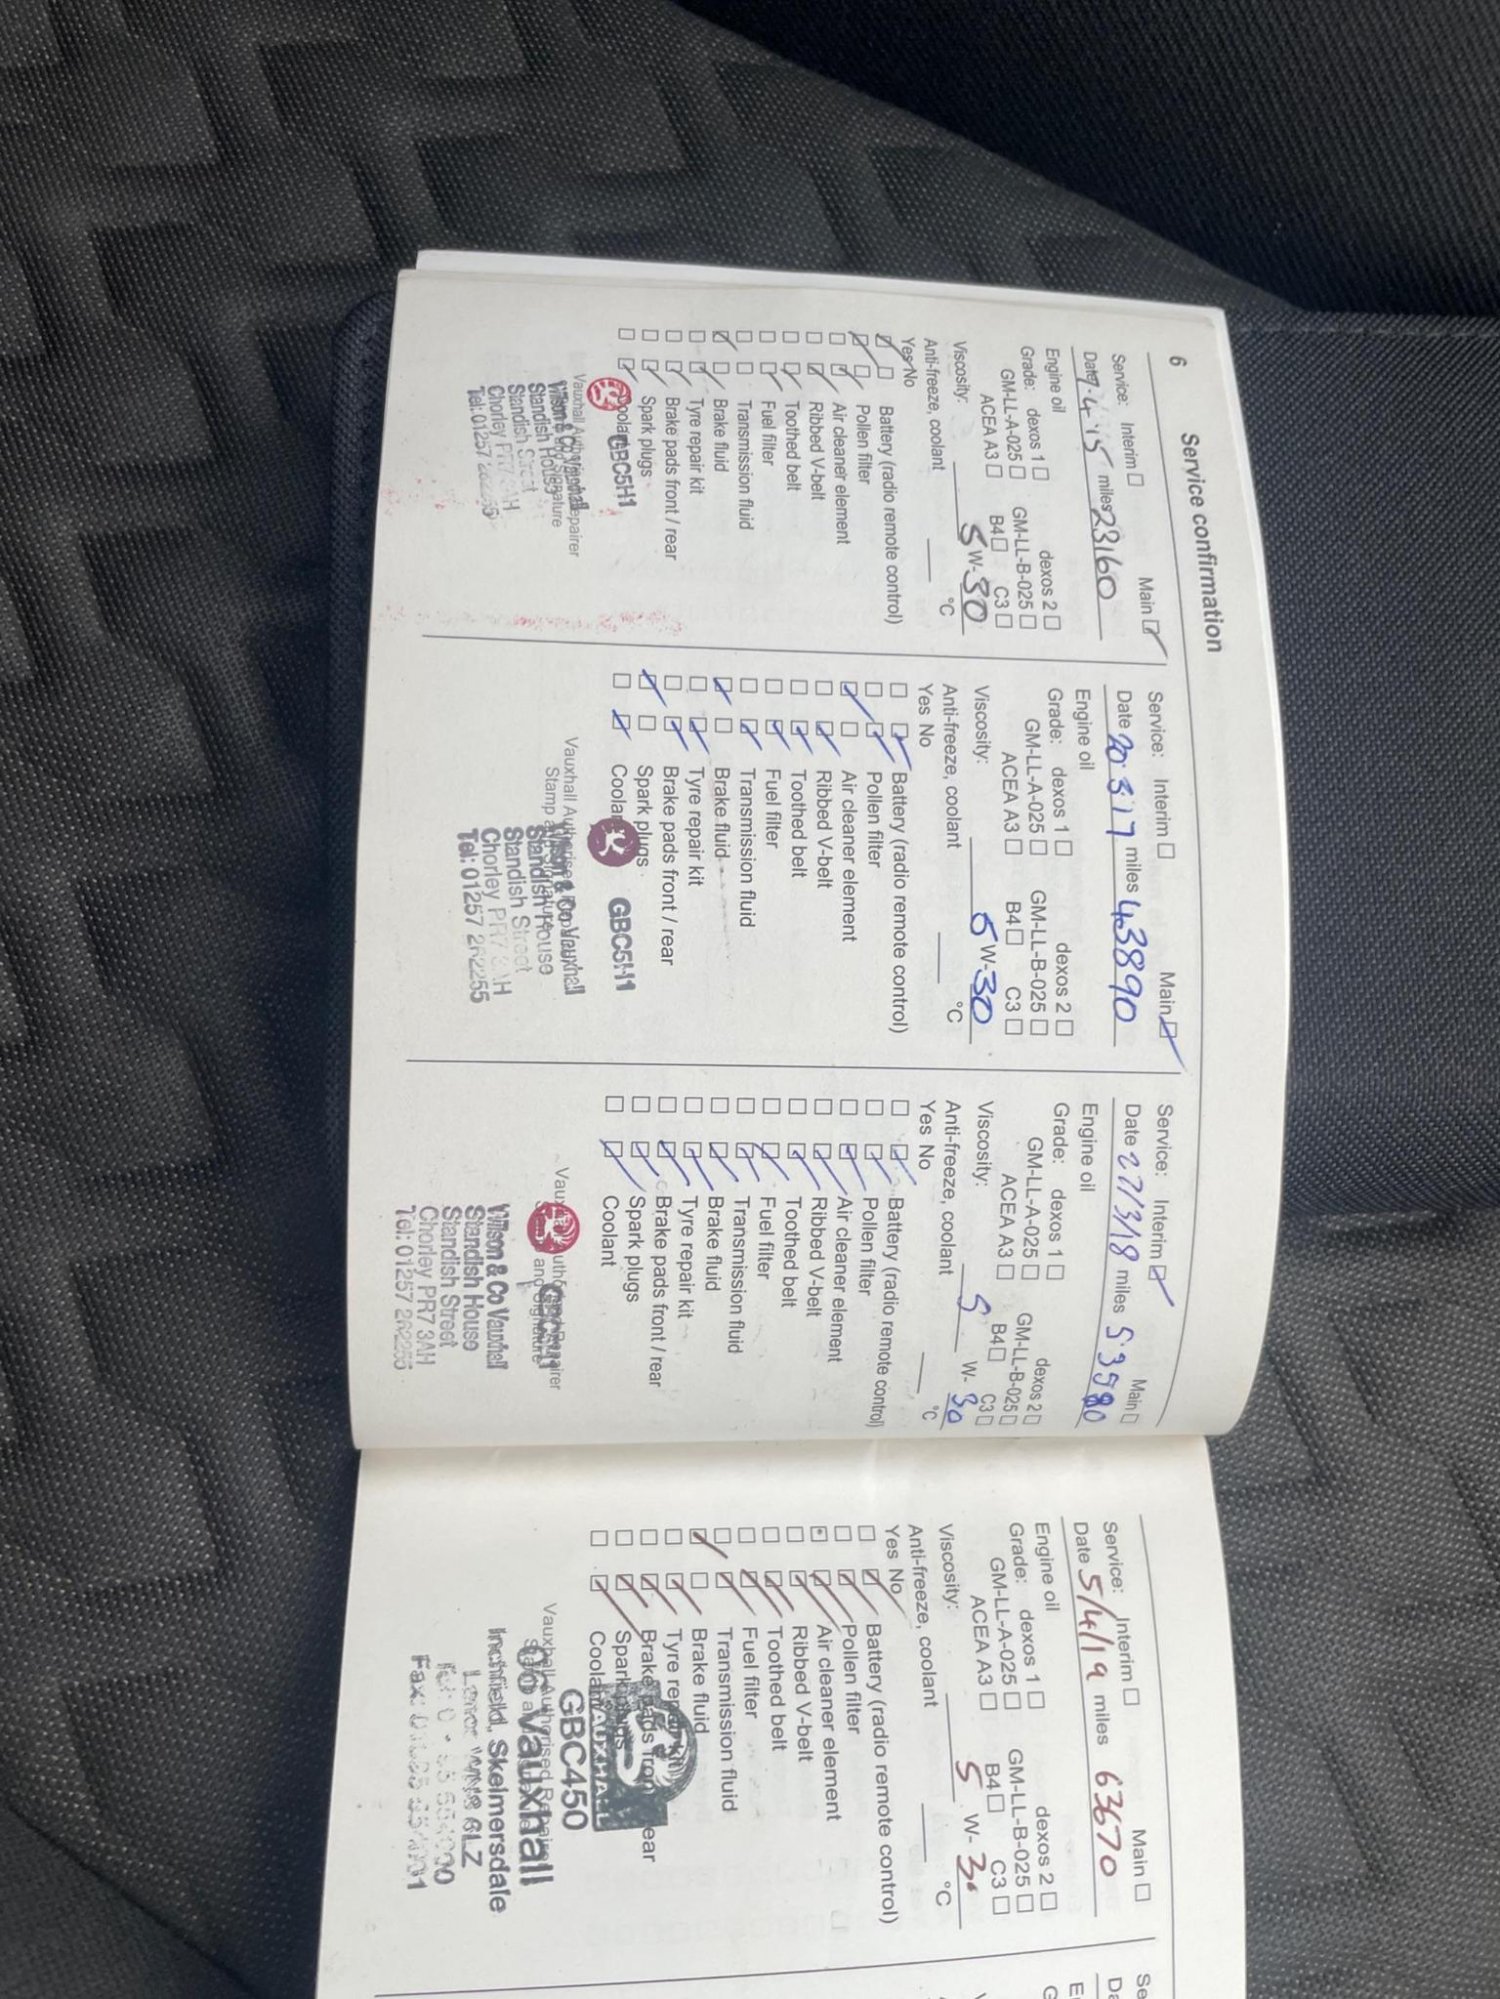 6 Service confirmation
Service: Interim Main
miles 23160
Engine oil
Grade: dexos 1 dexos 2
GM-LL-A-025 GM-LL-B-025
ACEA A3 B4 C3
Viscosity: 5 W-30
Anti-freeze, coolant °C
Yes No
Battery (radio remote control)
Pollen filter
Air cleaner element
Ribbed V-belt
Toothed belt
Fuel filter
Transmission fluid
Brake fluid
Tyre repair kit
Brake pads front / rear
Spark plugs
GBC5H1
Standish House
Standish Street
Chorley PR7 3AH
Tel: 01257
Service: Interim Main
Date 20.3.17 miles 43890
Engine oil
Grade: dexos 1 dexos 2
GM-LL-A-025 GM-LL-B-025
ACEA A3 B4 C3
Viscosity: 5 W-30
Anti-freeze, coolant °C
Yes No
Battery (radio remote control)
Pollen filter
Air cleaner element
Ribbed V-belt
Toothed belt
Fuel filter
Transmission fluid
Brake fluid
Tyre repair kit
Brake pads front / rear
Spark plugs
GBC5H1
Wilson & Co Vauxhall
Standish House
Standish Street
Chorley PR7 3AH
Tel: 01257 262255
Service: Interim Main
Date 27/3/18 miles
Engine oil
Grade: dexos 1 dexos 2
GM-LL-A-025 GM-LL-B-025
ACEA A3 B4 C3
Viscosity: 5 W-30
Anti-freeze, coolant °C
Yes No
Battery (radio remote control)
Pollen filter
Air cleaner element
Ribbed V-belt
Toothed belt
Fuel filter
Transmission fluid
Brake fluid
Tyre repair kit
Brake pads front / rear
Spark plugs
Coolant
GBC5H1
Wilson & Co Vauxhall
Standish House
Standish Street
Chorley PR7 3AH
Tel: 01257 262255
Service: Interim Main
Date 5/4/19 miles 63670
Engine oil
Grade: dexos 1 dexos 2
GM-LL-A-025 GM-LL-B-025
ACEA A3 B4 C3
Viscosity: 5 W-30
Anti-freeze, coolant °C
Yes No
Battery (radio remote control)
Pollen filter
Air cleaner element
Ribbed V-belt
Toothed belt
Fuel filter
Transmission fluid
Brake fluid
Tyre repair kit
Brake pads front / rear
Spark plugs
Coolant
VAUXHALL
GBC450
Vauxhall
Skelmersdale